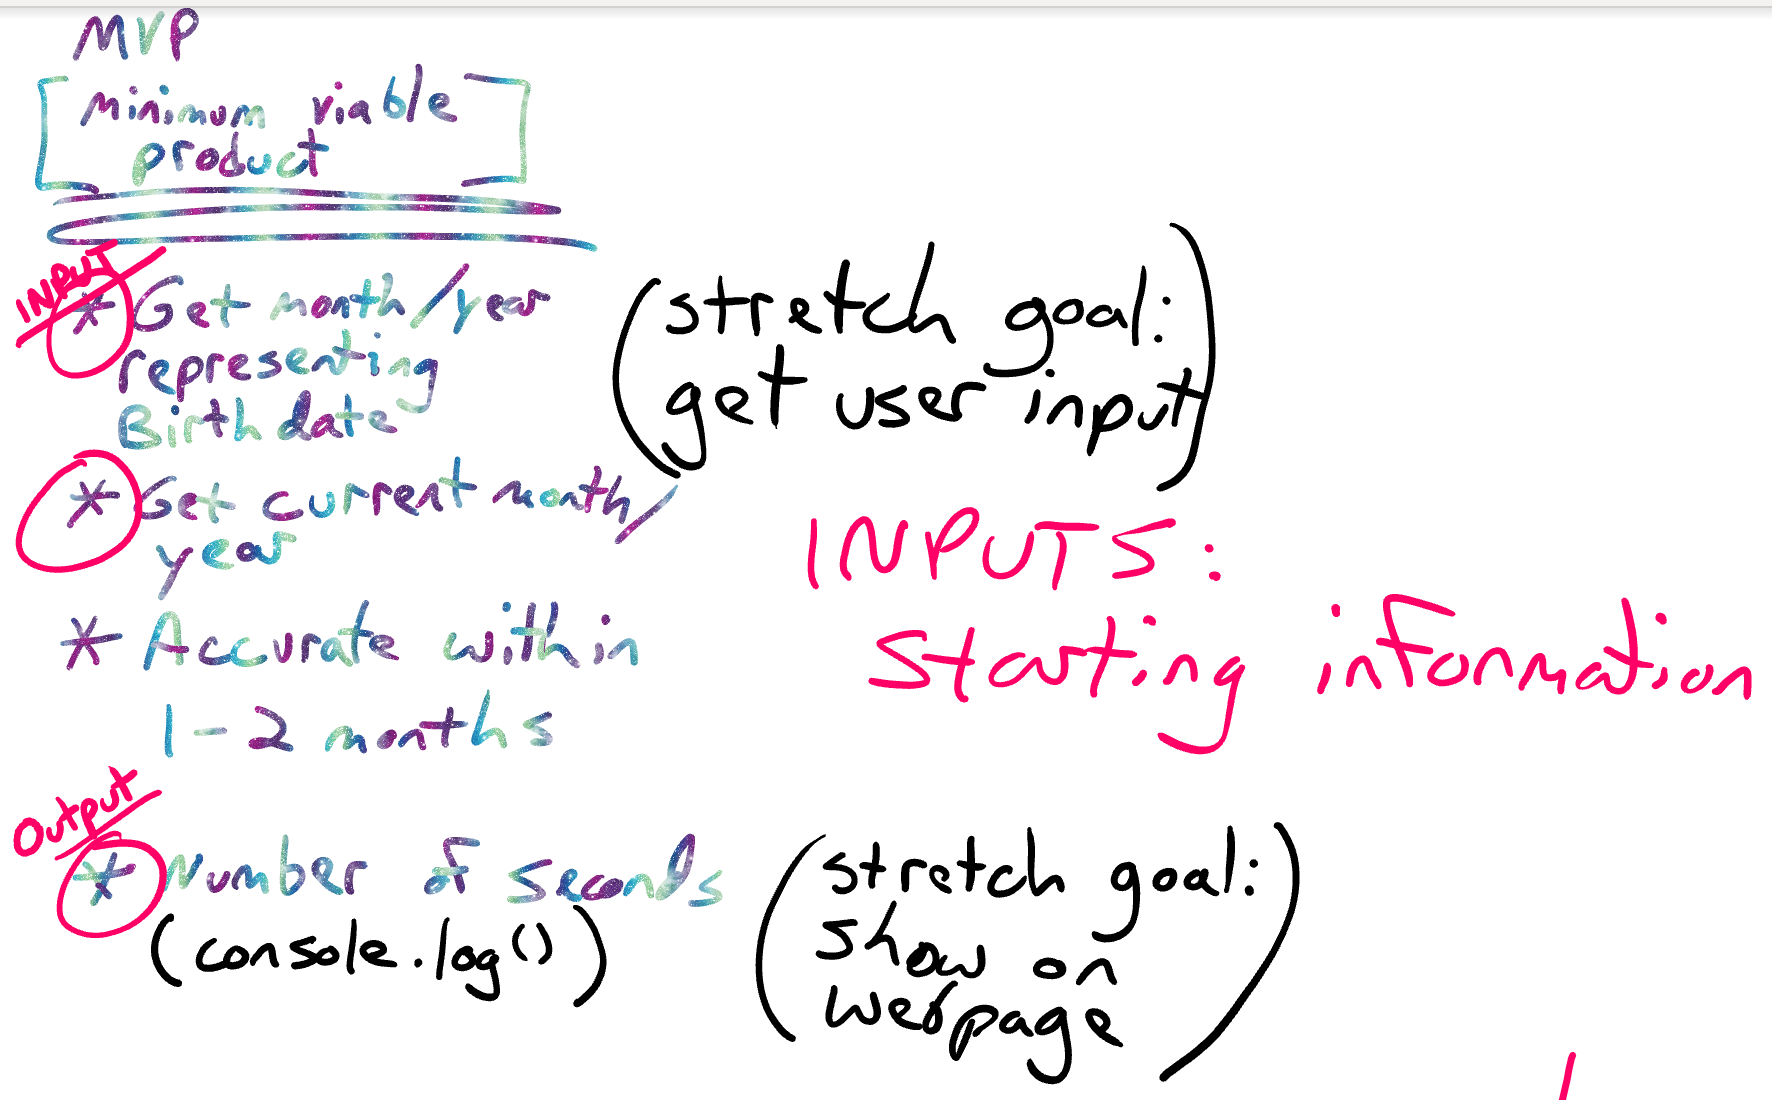 MVP
[minimum viable
product]
INPUT
* Get month/year
representing
Birth date
(stretch goal:
get user input)
* Get current month/
year
INPUTS:
Starting information
* Accurate within
1-2 months
Output
* Number of seconds
(console.log())
(stretch goal:
show on
webpage)